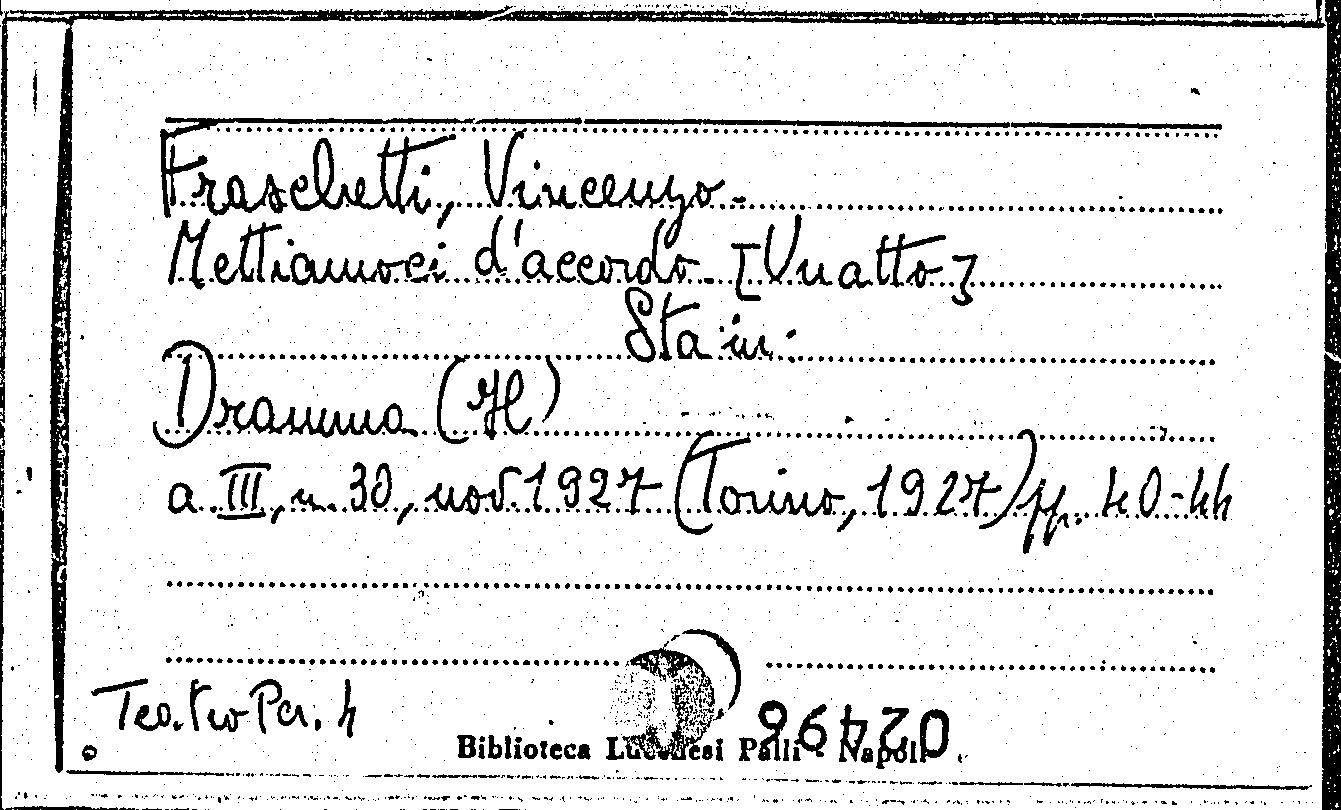 Fraschetti, Vincenzo.
Mettiamoci d'accordo. [Un atto]
Sta in:
Dramma (Il)
a. III, n. 30, nov. 1927 (Torino, 1927) pp. 40-44
Teatro Per. 4
Biblioteca Lucchesi Palli - Napoli
02496